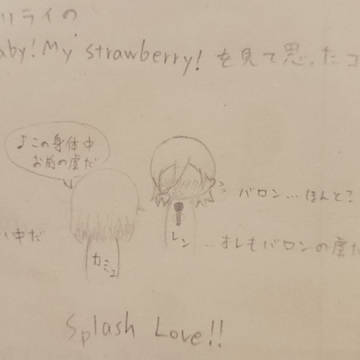 リライの
aby! My strawberry! を見て思ったコ
♪この身体中
お前の虜だ
バロン…ほんと?
い中だ
カミュ
レン
…オレもバロンの虜だ
Splash Love!!